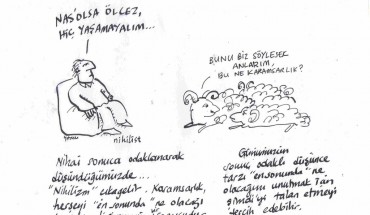 NAS'OLSA ÖLCEZ,
HİÇ YAŞAMAYALIM...
nihilist
BUNU BİZ SÖYLESEK
ANLARIM,
BU NE KARAMSARLIK?
Nihai sonuca odaklanarak
düşündüğümüzde...
"Nihilizm" çıkagelir. Karamsarlık,
herşeyi "en sonunda" ne olacağı
Günümüzün
sonuç odaklı düşünce
tarzı "en sonunda" ne
olacağını unutmak
şimdi'yi talan etmeyi
tercih edebilir.